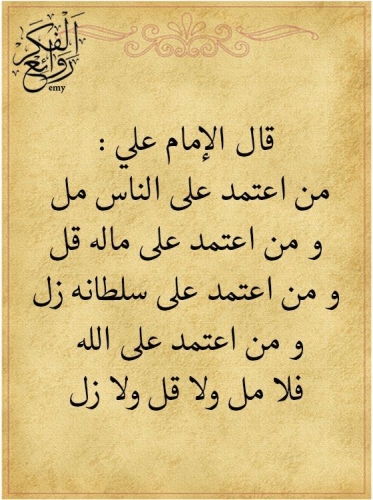 روائع الفكر
emy
قال الإمام علي :
من اعتمد على الناس مل
و من اعتمد على ماله قل
و من اعتمد على سلطانه زل
و من اعتمد على الله
فلا مل ولا قل ولا زل